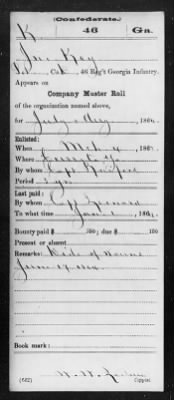 (Confederate.)
K 46 Ga.
Jno Key
Pvt, Co. K, 46 Reg't Georgia Infantry.
Appears on
Company Muster Roll
of the organization named above,
for July & Aug, 1864.
Enlisted:
When Mch 4, 186
Where
By whom Capt
Period 3 yrs
Last paid:
By whom Capt Leonard
To what time Jan 1, 186
Bounty paid $ 100; due $ 100
Present or absent
Remarks: Died of wound
June 17 1864
Book mark:
(642) Copyist.